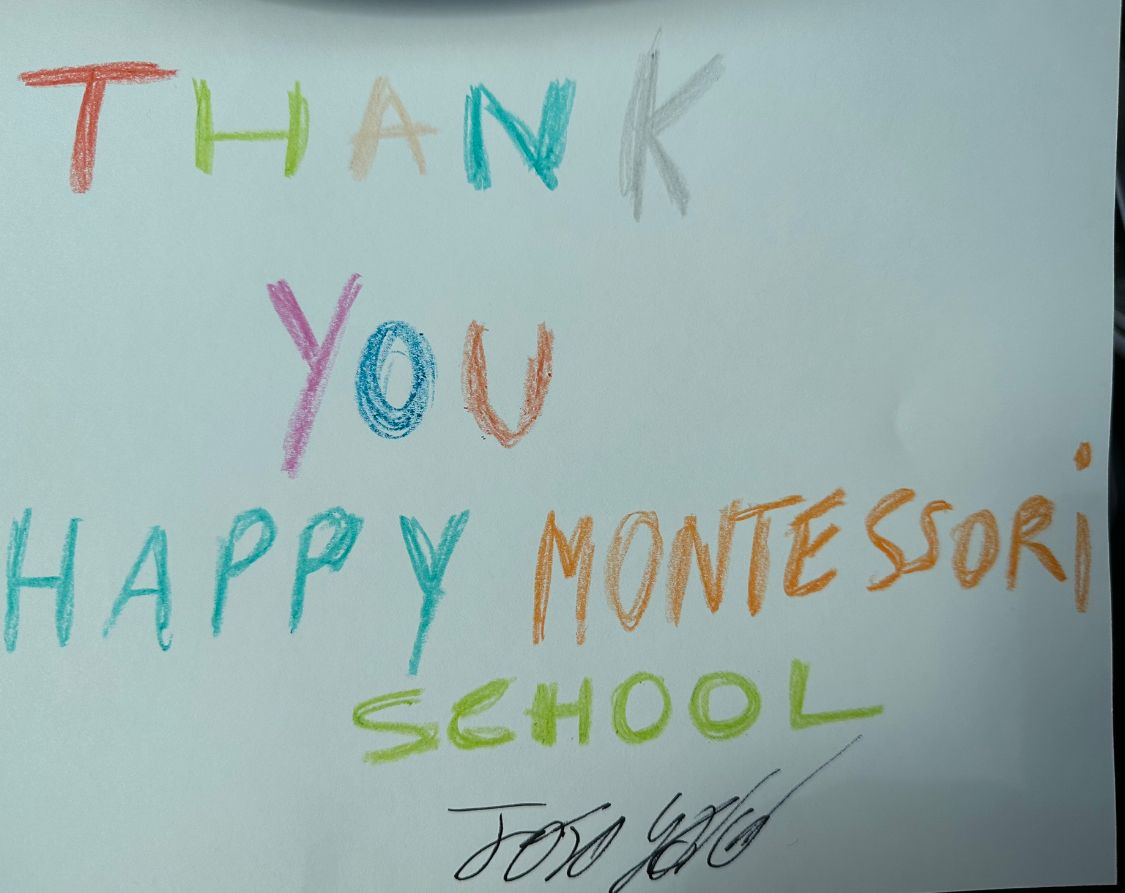 THANK
YOU
HAPPY MONTESSORi
SCHOOL